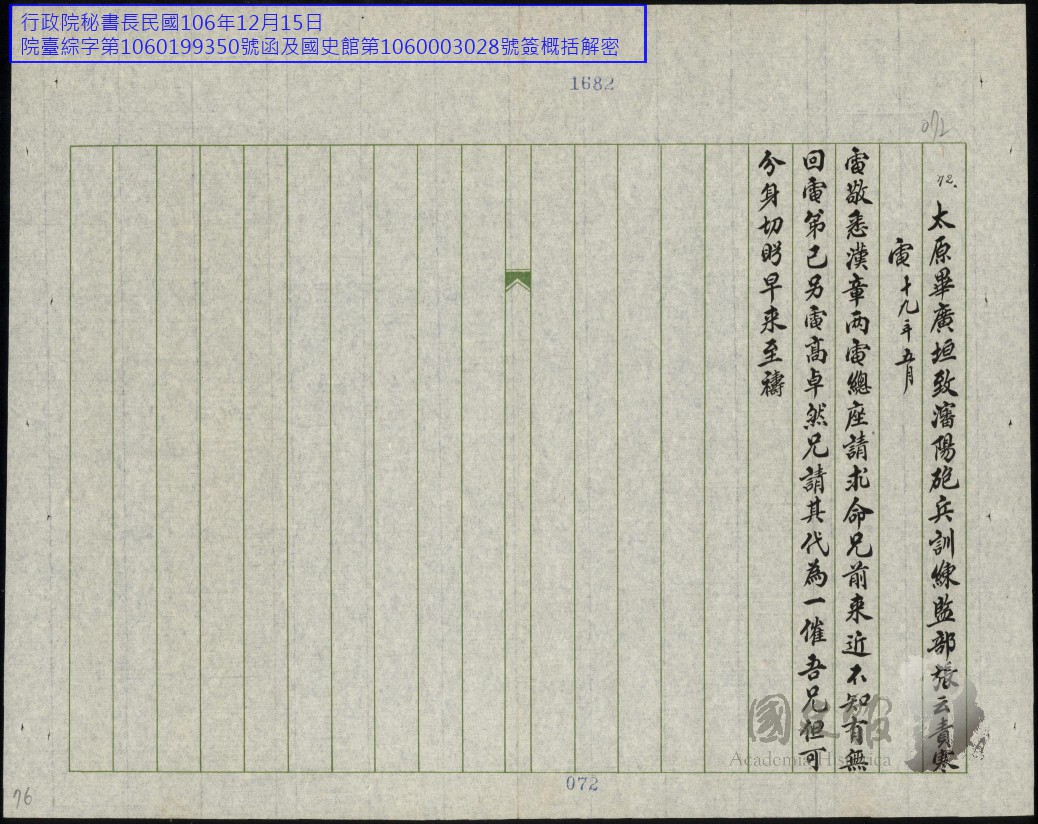 行政院秘書長民國106年12月15日
院臺綜字第1060199350號函及國史館第1060003028號簽概括解密
1682
072
72.
太原畢廣垣致瀋陽砲兵訓練監部張云責寒
電十九年五月
電敬悉漢章兩電總座請求命兄前来近不知有無
回電弟已另電高卓然兄請其代為一催吾兄但可
分身切盼早来至禱
072
76
國史館
Academia Historica